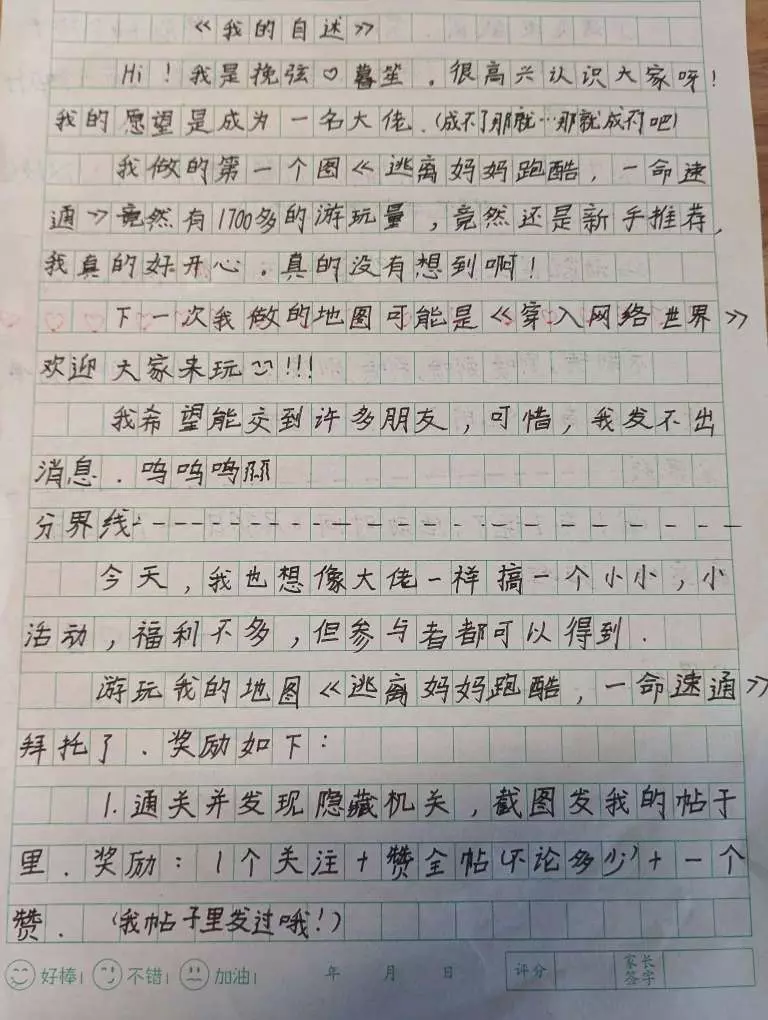 《我的自述》
Hi！我是挽弦♡暮笙．很高兴认识大家呀！
我的愿望是成为一名大佬.(成不了那就…那就成不了吧)
我做的第一个图《逃离妈妈跑酷，一命速
通》竟然有1700多的游玩量，竟然还是新手推荐，
我真的好开心．真的没有想到啊！
下一次我做的地图可能是《穿入网络世界》
欢迎大家来玩!!!
我希望能交到许多朋友，可惜，我发不出
消息．呜呜呜
分界线------------------------
今天，我也想像大佬一样搞一个小小，小
活动，福利不多，但参与者都可以得到．
游玩我的地图《逃离妈妈跑酷，一命速通》
拜托了．奖励如下：
1.通关并发现隐藏机关，截图发我的帖子
里．奖励：1个关注+赞全帖(不论多少)+一个
赞．(我帖子里发过哦！)
好棒! 不错! 加油! 年 月 日 评分 家长签字